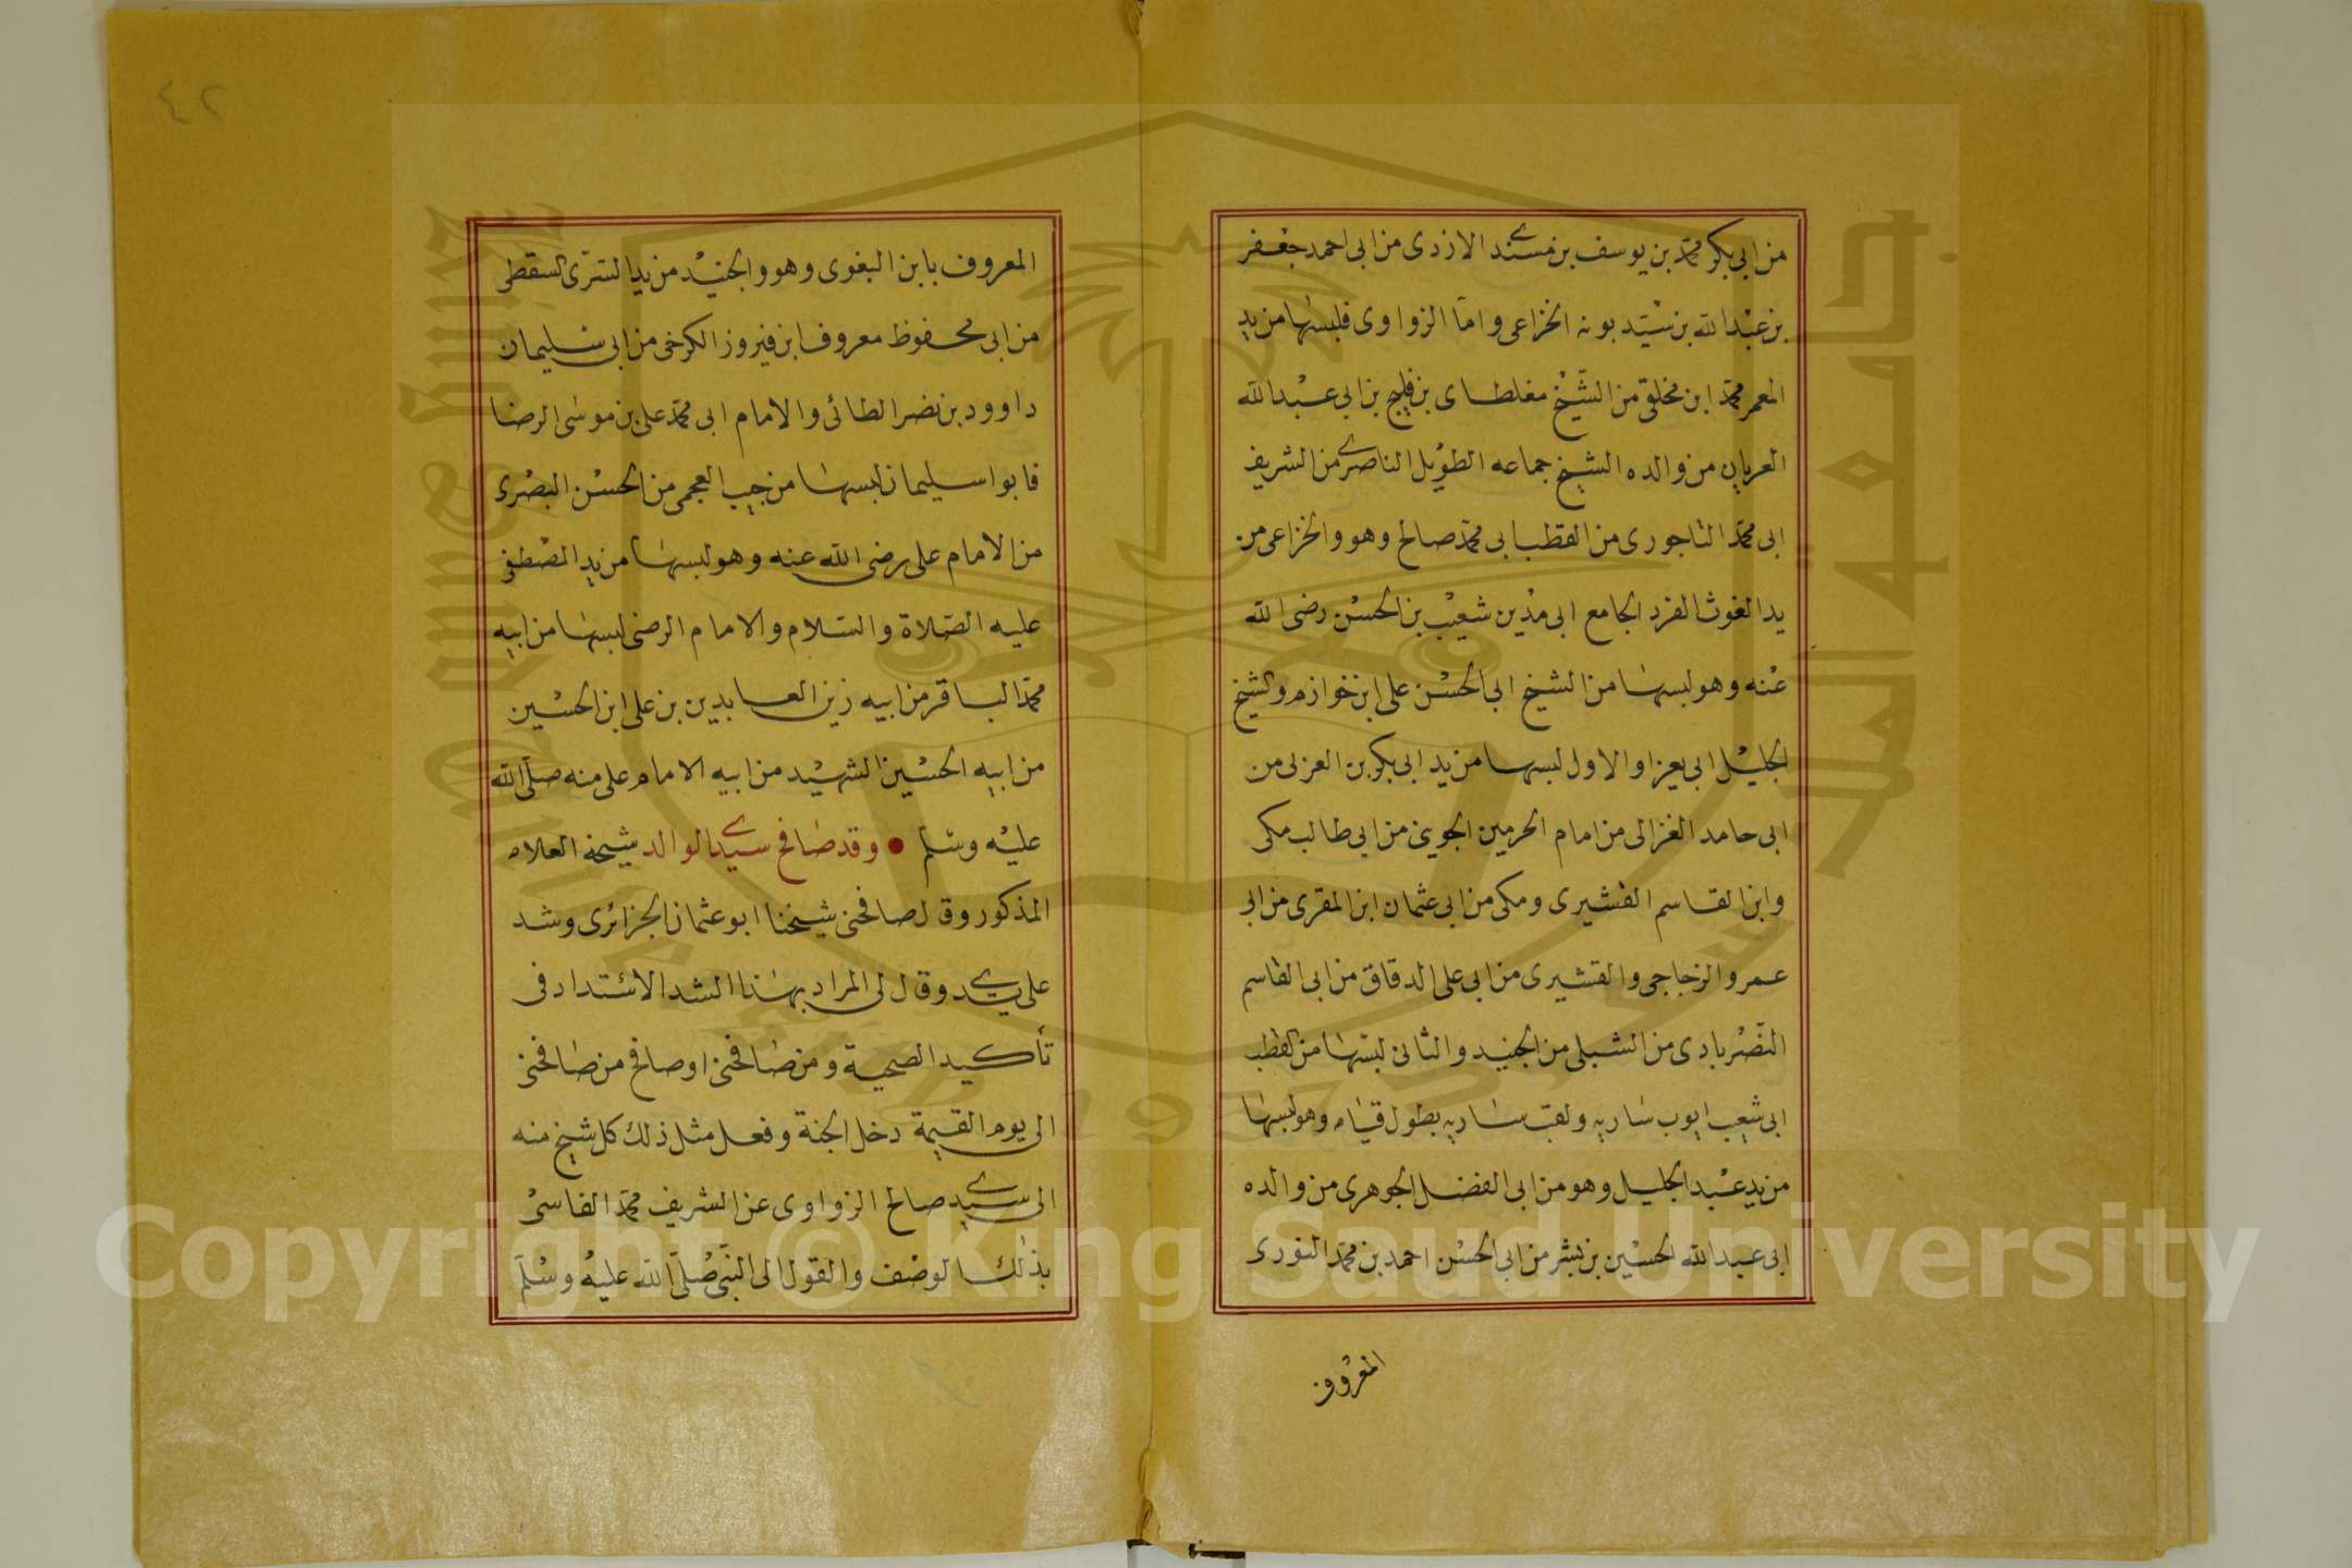 من ابي بكر محمد بن يوسف بن مسندي الازدى من ابى احمد جعفر
بن عبد الله بن سيد بونه الخزاعى واما الزواوى فلبسها من يد
المعمر محمد ابن مخلق من الشيخ مغلطاى بن فليح بن ابي عبد الله
العريان من والده الشيخ جماعه الطويل الناصرى من الشريف
ابى محمد التاجورى من القطب ابى محمد صالح وهو والخزاعى من
يد الغوث الفرد الجامع ابى مدين شعيب بن الحسن رضى الله
عنه وهو لبسها من الشيخ ابى الحسن على ابن خوازم والشيخ
الجليل ابى يعزا والاول لبسها من يد ابى بكر بن العربى من
ابى حامد الغزالى من امام الحرمين الجوينى من ابى طالب مكى
وابن القاسم القشيرى ومكى من ابى عثمان ابن المقرى من ابى
عمرو الزجاجى والقشيرى من ابى على الدقاق من ابى القاسم
النصربادى من الشبلى من الجنيد والثانى لبسها من القطب
ابى شعيب ايوب ساريه ولقب ساريه بطول قيامه وهو لبسها
من يد عبد الجليل وهو من ابى الفضل الجوهرى من والده
ابى عبد الله الحسين بن بشر من ابى الحسن احمد بن محمد النورى
المعروف
٤٢
المعروف بابن البغوى وهو والجنيد من يد السرى السقطى
من ابى محفوظ معروف ابن فيروز الكرخى من ابى سليمان
داوود بن نضر الطائى والامام ابى محمد على بن موسى الرضا
فابوا سليمان لبسها من حبيب العجمى من الحسن البصرى
من الامام على رضى الله عنه وهو لبسها من يد المصطفى
عليه الصلاة والسلام والامام الرضى لبسها من ابيه
محمد الباقر من ابيه زين العابدين بن على ابن الحسين
من ابيه الحسين الشهيد من ابيه الامام على منه صلى الله
عليه وسلم • وقد صافح سيدى الوالد شيخه العلامه
المذكور وقال صافحنى شيخنا ابو عثمان الجزائرى وشد
على يدى وقال لى المراد بهذا الشد الاشتداد فى
تأكيد الصحبة ومن صافحنى او صافح من صافحنى
الى يوم القيمة دخل الجنة وفعل مثل ذلك كل شيخ منه
الى سيدى صالح الزواوى عن الشريف محمد الفاسى
بذلك الوصف والقول الى النبى صلى الله عليه وسلم
Copyright © King Saud University